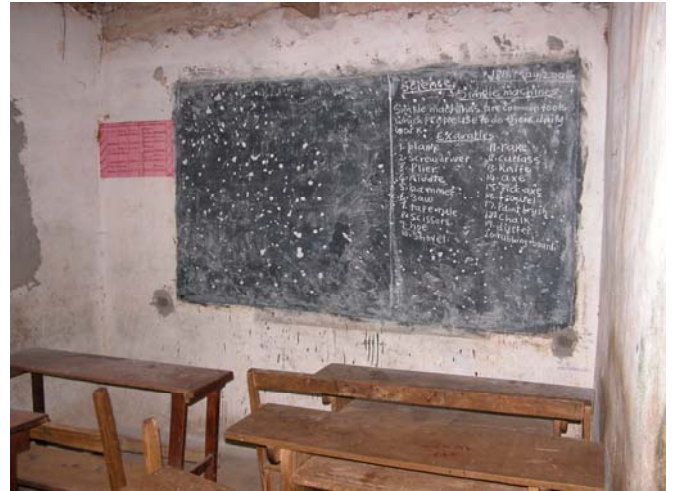 Science
Simple machines
Simple machines are common tools
which people use to do there daily
work.
Examples
1. plank
2. screw driver
3. Plier
4.
5. hammer
6. saw
7. tape rule
8. Scissors
9. hoe
10. shovel
11. rake
12. cutlass
13. Knife
14. axe
15. Pick axe
16. trowel
17. Paint brush
18. Chalk
19. duster
20. rubbing board